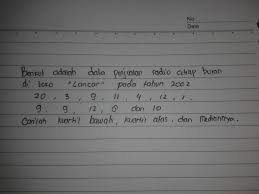 No
Date
Berikut adalah data penjualan radio setiap bulan
di toko "Lancar" pada tahun 2002
20, 3, 9, 11, 4, 12, 1,
9, 9, 12, 8 dan 10
Carilah kuartil bawah, kuartil atas, dan mediannya.